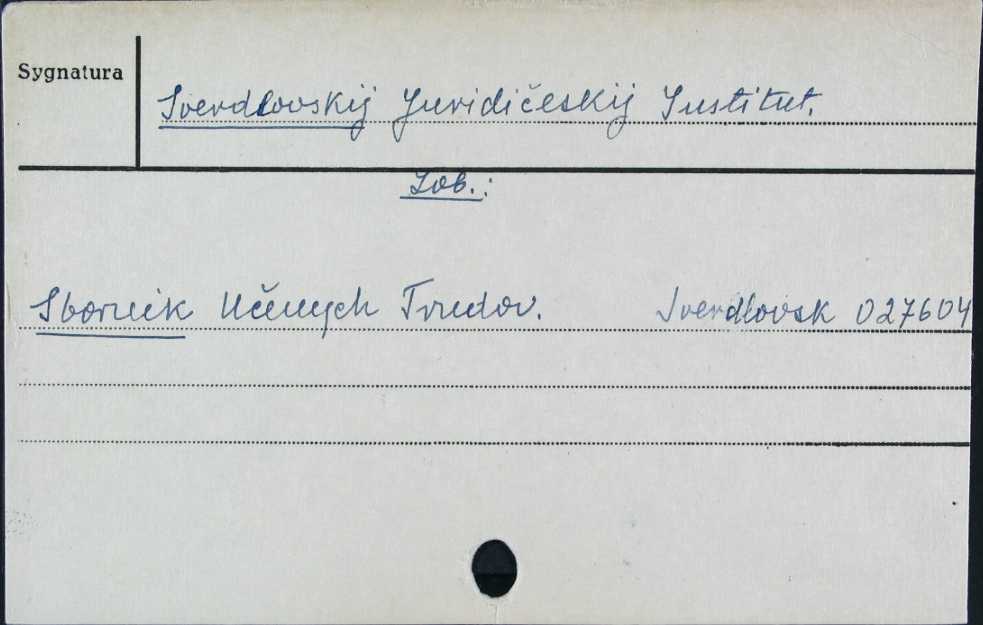 Sygnatura
Sverdlovskij Juridičeskij Institut.
Zob.:
Sbornik Učenych Trudov. Sverdlovsk 027604